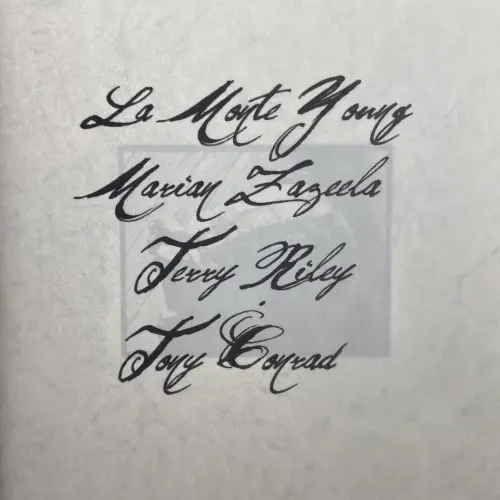 La Monte Young
Marian Zazeela
Terry Riley
Tony Conrad